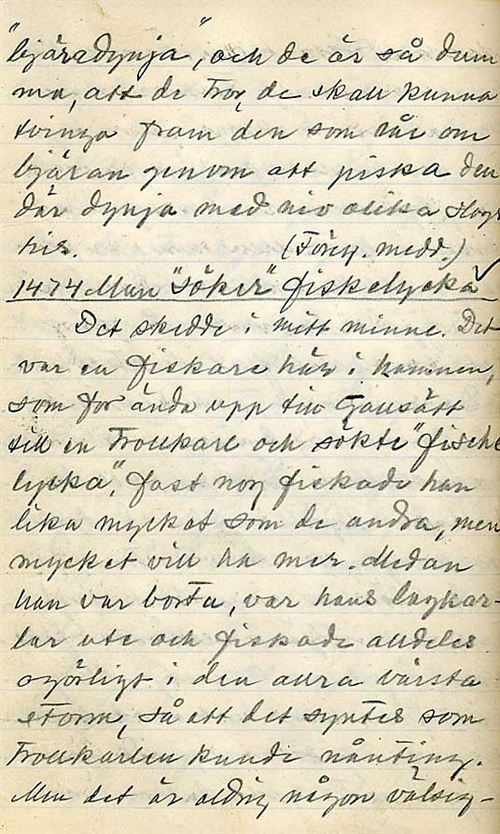 "bjäradynja", och de är så dum
ma, att de tror, de skall kunna
tvinga fram den som rår om
bjäran genom att piska den
där dynja med nio olika slags
ris. (Föreg. medd.)
1474 Man "söker" fiskelycka ✓
Det skedde i mitt minne. Det
var en fiskare här i hamnen,
som for ända upp till
till en Trollkarl och sökte "fiske
lycka", fast nog fiskade han
lika mycket som de andra, men
mycket vill ha mer. Medan
han var borta, var hans lagkar-
lar ute och fiskade alldeles
ogörligt i den allra värsta
storm, så att det syntes som
Trollkarlen kunde nånting.
Men det är aldrig någon välsig-